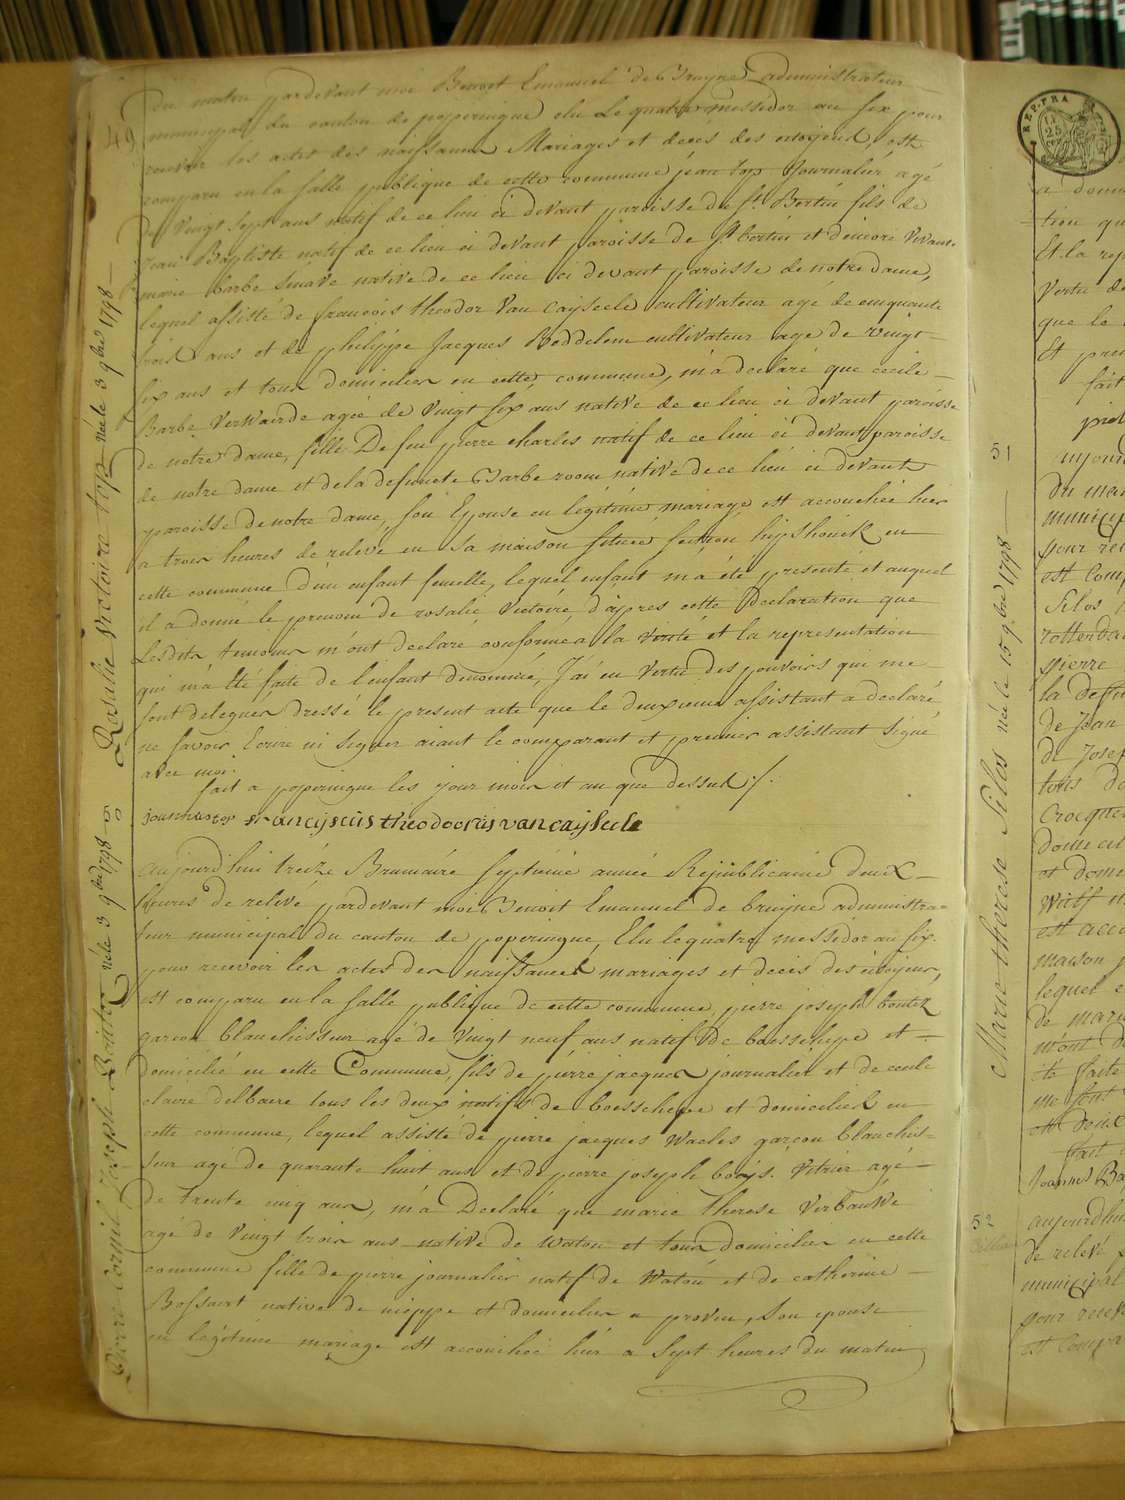 49
du matin pardevant moi Benoit Emanuel de Bruyne administrateur
municipal du canton de poperingue elu le quatre messidor an six pour
recevoir les actes des naissances Mariages et deces des citoyens, est
comparu en la salle publique de cette commune jean top Journalier agé
de vingt sept ans natif de ce lieu ci devant paroisse de St. Bertin fils de
jean Baptiste natif de ce lieu ci devant paroisse de St bertin et d'encore vivante
marie barbe Smave native de ce lieu ci devant paroisse de notre dame,
lequel assisté de francois theodor Van Cayseele cultivateur agé de cinquante
trois ans et de philippe Jacques Beddeleem cultivateur agé de vingt
six ans et tous domicilies en cette commune, m'a declaré que cecile
Barbe Verwaerde agée de vingt six ans native de ce lieu ci devant paroisse
de notre dame, fille De feu pierre charles natif de ce lieu ci devant paroisse
de notre dame et de la defuncte Barbe room native de ce lieu ci devant
paroisse de notre dame, son Epouse en légitime mariage est accouchée hier
a trois heures de relevé en sa maison située section hipshouck en
cette commune d'un enfant femelle, lequel enfant m'a été presenté et auquel
il a donné le prenom de rosalie Victoire d'apres cette Declaration que
Lesdits temoins m'ont declaré conforme a la verité et la representation
qui m'a été faite de l'enfant denommé, J'ai en vertu Des pouvoirs qui me
sont deleguer dressé le present acte que le deuxieme assistant a declaré
ne savoir Ecrire ni Signer aiant le comparant et premier assistent Signé
avec moi.
fait a poperingue les jour mois et an que dessus ./.
joannes top franciscus theodoorus van cayseele
Rosalie Victoire Top née le 3 9bre 1798
50
aujourd'hui treize Brumaire septieme année Republicaine deux
heures de relevé pardevant moi Benoit Emanuel de bruyne administra=
teur municipal du canton de poperingue, Elu le quatre messidor an six
pour recevoir les actes des naissances mariages et deces des citoyens,
est comparu en la salle publique de cette commune pierre joseph bontez
garcon blanchisseur agé de vingt neuf ans natif de boesschepe et
domicilié en cette Commune, fils de pierre jacques journalier et de
claire delbaere tous les deux natifs de boesschepe et domiciliés en
cette commune, lequel assisté de pierre jacques Waeles garcon blanchis=
seur agé de quarante huit ans et de pierre joseph booys. Vitrier agé
De trente cinq ans, m'a Declaré que marie therese Verbauwe
agé de vingt trois ans native de watou et tous domicilies en cette
commune fille de pierre journalier natif de Watou et de catherine
Bossaert native de nieppe et domicilies a proven, Son epouse
en legitime mariage est accouchée hier a Sept heures du matin
Pierre Joseph née le 3 9bre 1798
REP. FRA
51
Marie therese Silos née le 15 9bre 1798
a donné
tien qu
Et la rep
vertu de
que le
Et pre
fait
aujour
du ma
municip
pour re
est Comp
Silos
rotterda
pierre
la deffu
de Jean
de Josep
tous do
Crocque
et dome
est acc
maison
lequel e
de mari
m'ont d
été faite
me sont
et deux
fait
Joannes Ba
52
aujourdhui
de relevé
municipal
pour recev
est Compa